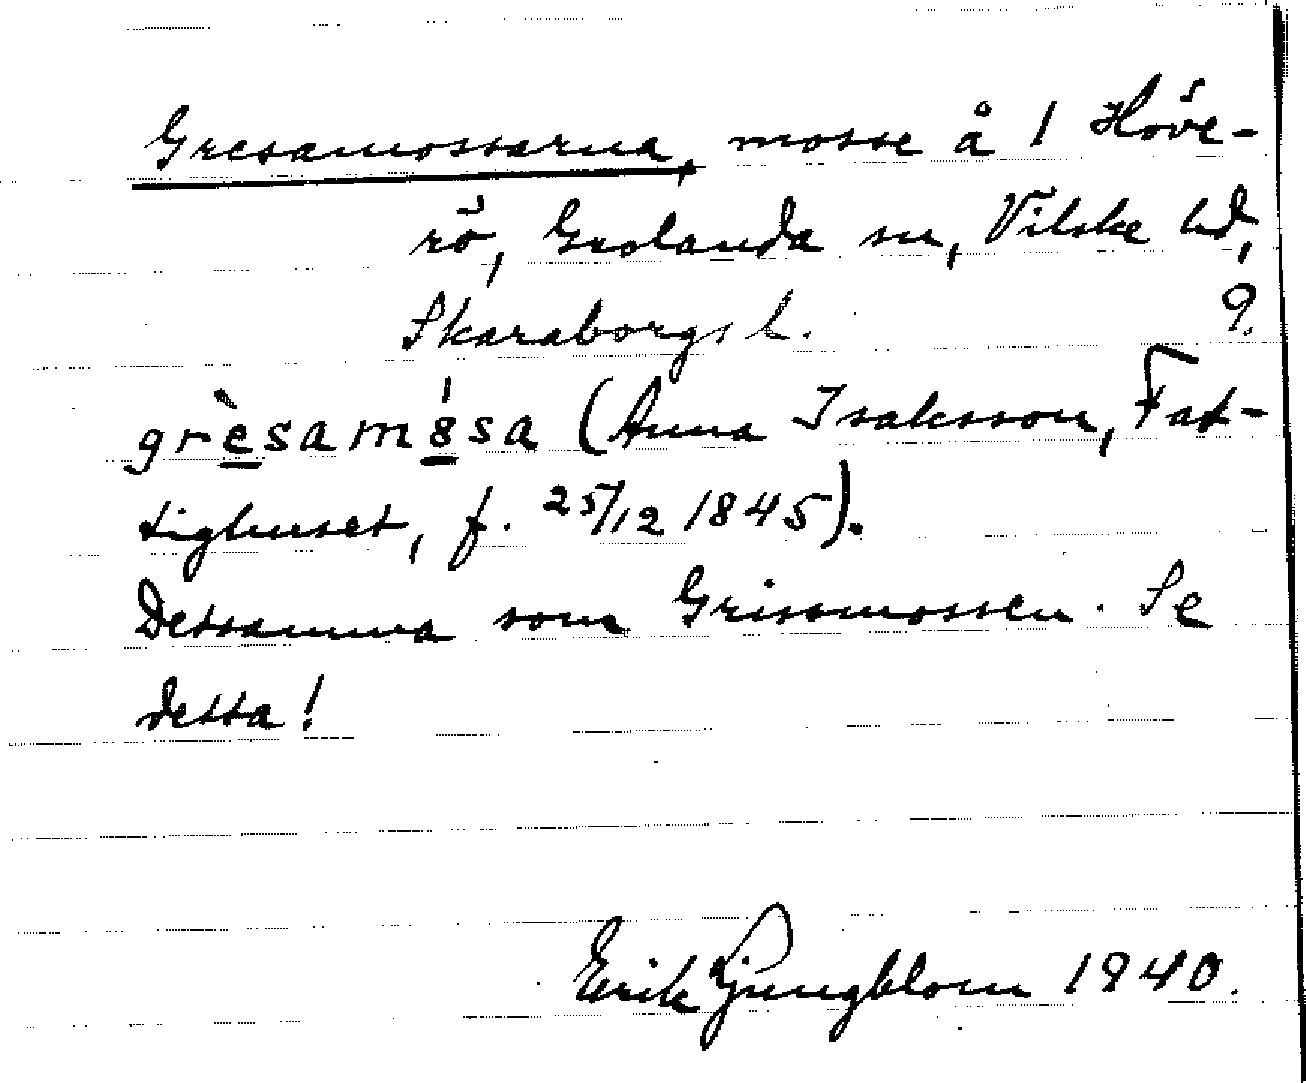 Gresamossarna, mosse å 1 Höve-
rö, Grolanda sn, Vilske hd,
Skaraborgs l. 9.
grèsamósa (Anna Isaksson, Fat-
tighuset, f. 25/12 1845).
Detsamma som Grissmossen. Se
detta!
Erik Ljungblom 1940.